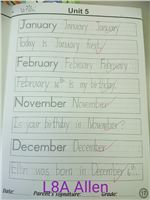 Unit 5
January January January
Today is January first.
February February February
February 16th is my birthday.
November November
Is your birthday in November?
December December
Ellin was born in December 6th.
Date: Parent's Signature: Grade:
L8A Allen